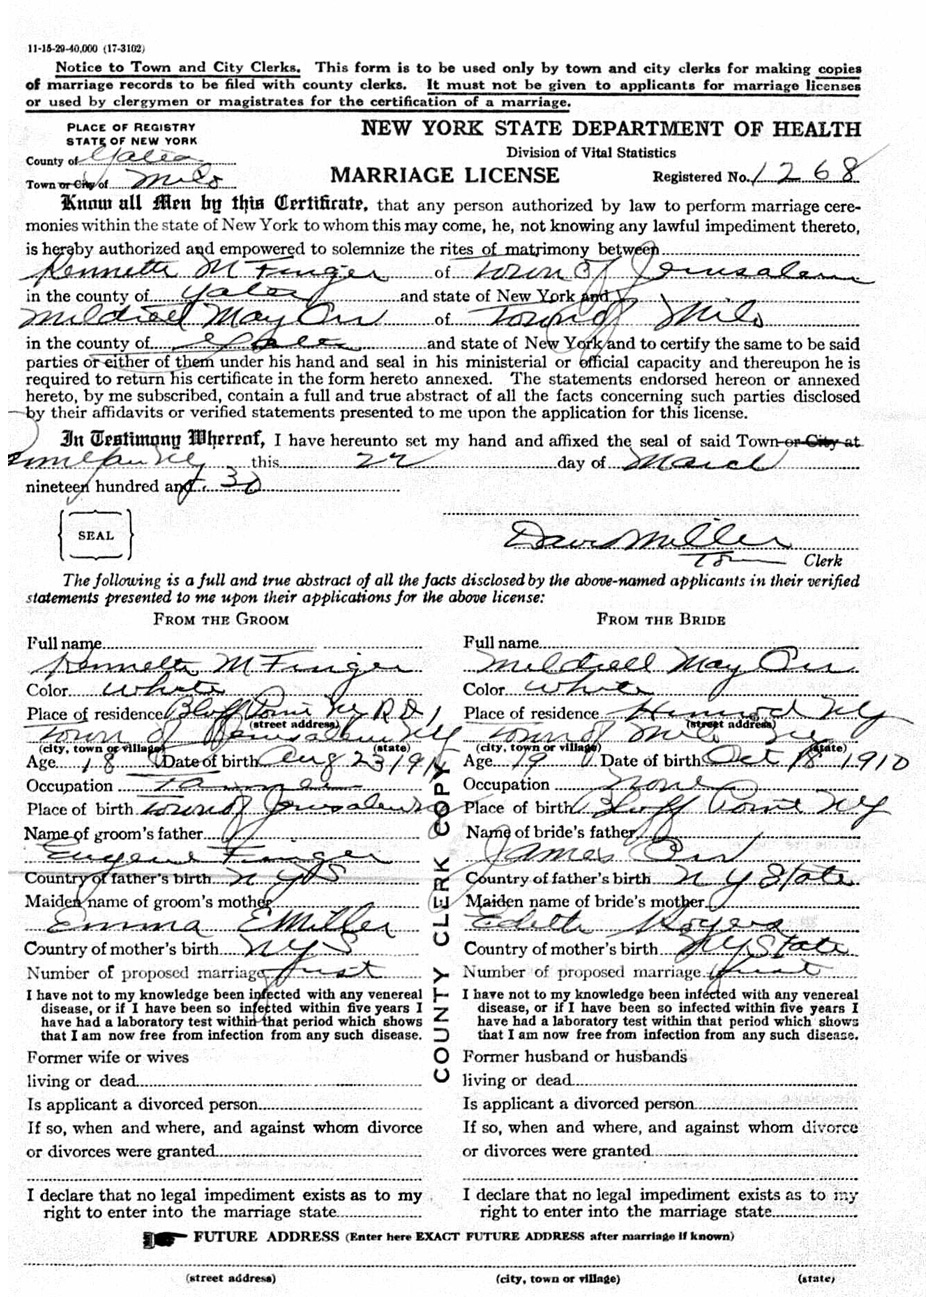 11-15-29-40,000 (17-3102)
Notice to Town and City Clerks. This form is to be used only by town and city clerks for making copies
of marriage records to be filed with county clerks. It must not be given to applicants for marriage licenses
or used by clergymen or magistrates for the certification of a marriage.
PLACE OF REGISTRY
STATE OF NEW YORK
County of Yates
Town or City of Milo
NEW YORK STATE DEPARTMENT OF HEALTH
Division of Vital Statistics
MARRIAGE LICENSE
Registered No. 1268
Know all Men by this Certificate, that any person authorized by law to perform marriage cere-
monies within the state of New York to whom this may come, he, not knowing any lawful impediment thereto,
is hereby authorized and empowered to solemnize the rites of matrimony between
Kenneth M Finger of Town of Jerusalem
in the county of Yates and state of New York and
Mildred May Orr of Town of Milo
in the county of Yates and state of New York and to certify the same to be said
parties or either of them under his hand and seal in his ministerial or official capacity and thereupon he is
required to return his certificate in the form hereto annexed. The statements endorsed hereon or annexed
hereto, by me subscribed, contain a full and true abstract of all the facts concerning such parties disclosed
by their affidavits or verified statements presented to me upon the application for this license.
In Testimony Whereof, I have hereunto set my hand and affixed the seal of said Town or City at
this 22 day of March
nineteen hundred and 30
SEAL
Miller
Town Clerk
The following is a full and true abstract of all the facts disclosed by the above-named applicants in their verified
statements presented to me upon their applications for the above license:
FROM THE GROOM
Full name
Kenneth M Finger
Color White
Place of residence Bluff Point NY R D 1
(street address)
Town of Jerusalem NY
(city, town or village) (state)
Age 18 Date of birth Aug 23 191
Occupation Farmer
Place of birth Town of Jerusalem
Name of groom's father
Eugene Finger
Country of father's birth NYS
Maiden name of groom's mother
Emma E Miller
Country of mother's birth NYS
Number of proposed marriage first
I have not to my knowledge been infected with any venereal
disease, or if I have been so infected within five years I
have had a laboratory test within that period which shows
that I am now free from infection from any such disease.
Former wife or wives
living or dead
Is applicant a divorced person
If so, when and where, and against whom divorce
or divorces were granted
I declare that no legal impediment exists as to my
right to enter into the marriage state
COUNTY CLERK COPY
FROM THE BRIDE
Full name
Mildred May Orr
Color White
Place of residence Himrod NY
(street address)
Town of Milo NY
(city, town or village) (state)
Age 19 Date of birth Oct 18 1910
Occupation None
Place of birth Bluff Point NY
Name of bride's father
James Orr
Country of father's birth N Y State
Maiden name of bride's mother
Edith Rogers
Country of mother's birth NY State
Number of proposed marriage first
I have not to my knowledge been infected with any venereal
disease, or if I have been so infected within five years I
have had a laboratory test within that period which shows
that I am now free from infection from any such disease.
Former husband or husbands
living or dead
Is applicant a divorced person
If so, when and where, and against whom divorce
or divorces were granted
I declare that no legal impediment exists as to my
right to enter into the marriage state
FUTURE ADDRESS (Enter here EXACT FUTURE ADDRESS after marriage if known)
(street address) (city, town or village) (state)